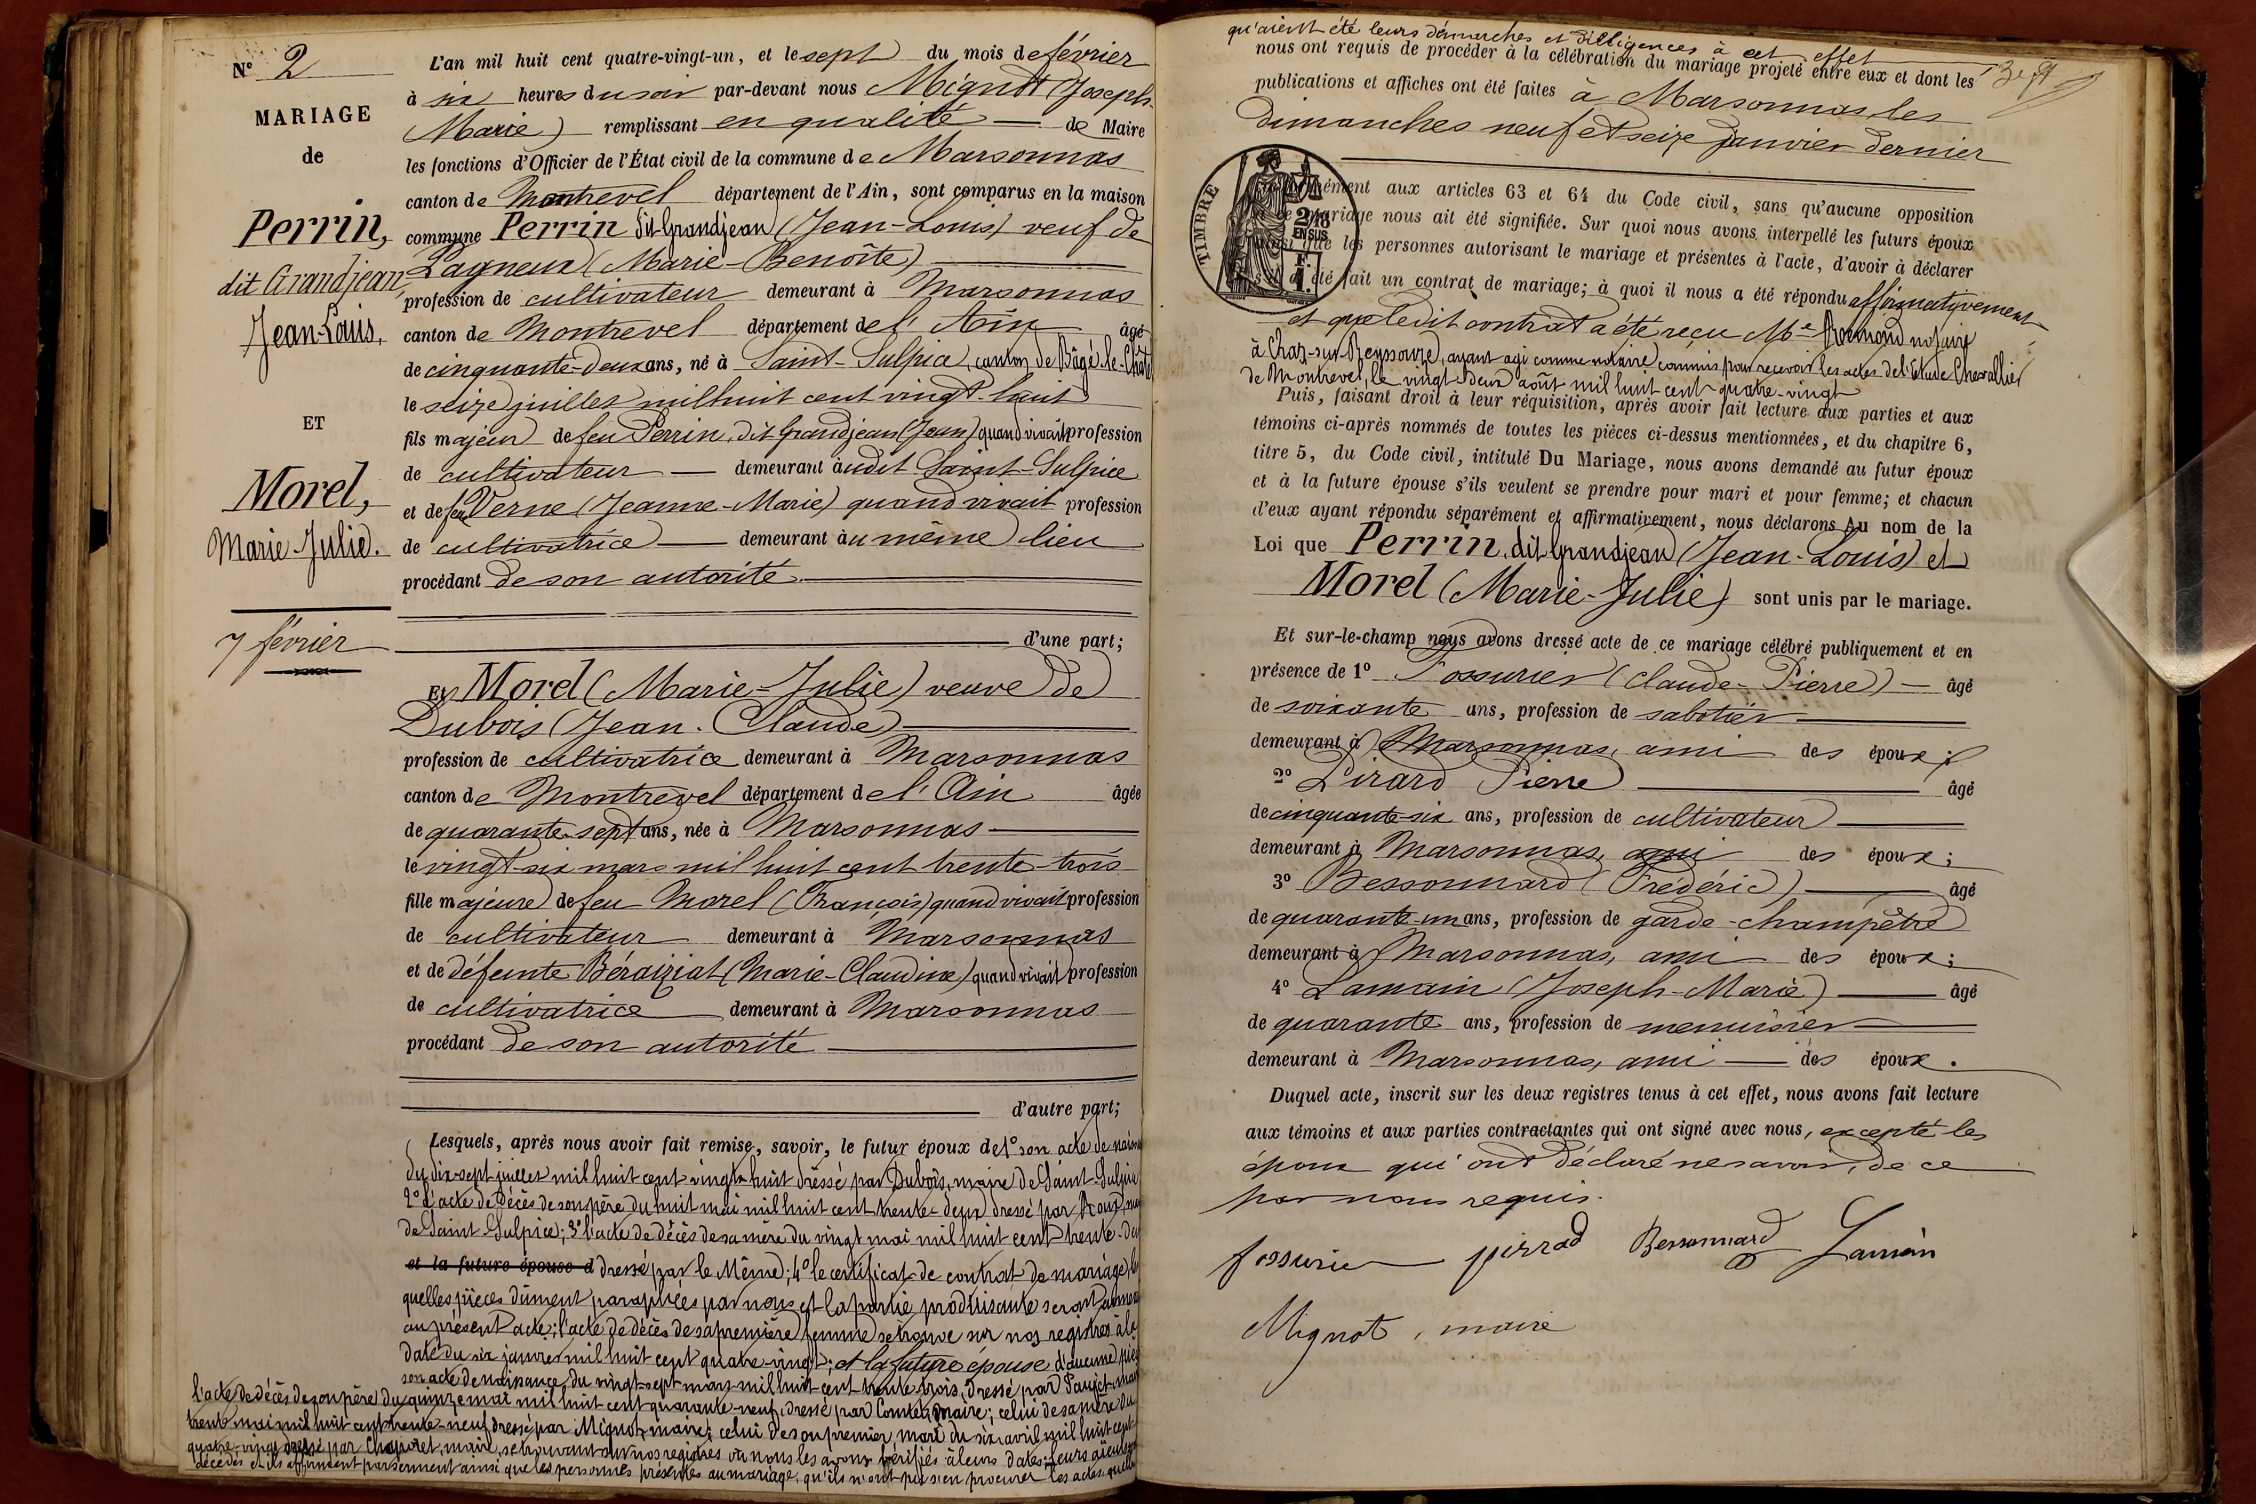 N° 2
MARIAGE
de
Perrin,
dit Grandjean,
Jean-Louis,
ET
Morel,
Marie-Julie.
7 février
L'an mil huit cent quatre-vingt-un, et le sept du mois de février
à six heures du soir par-devant nous Mignot (Joseph-
Marie) remplissant en qualité de Maire
les fonctions d'Officier de l'État civil de la commune de Marsonnas
canton de Montrevel département de l'Ain, sont comparus en la maison
commune Perrin dit Grandjean (Jean-Louis) veuf de
Lagneux (Marie-Benoîte)
profession de cultivateur demeurant à Marsonnas
canton de Montrevel département de l'Ain âgé
de cinquante-deux ans, né à Saint-Sulpice, canton de Bâgé-le-Châtel
le seize juillet mil huit cent vingt-huit
fils majeur de feu Perrin, dit Grandjean (Jean) quand vivait profession
de cultivateur demeurant audit Saint-Sulpice
et de feu Verne (Jeanne-Marie) quand vivait profession
de cultivatrice demeurant au même lieu
procédant de son autorité
d'une part;
Et Morel (Marie-Julie) veuve de
Dubois (Jean-Claude)
profession de cultivatrice demeurant à Marsonnas
canton de Montrevel département de l'Ain âgée
de quarante-sept ans, née à Marsonnas
le vingt-six mars mil huit cent trente-trois
fille majeure de feu Morel (François) quand vivait profession
de cultivateur demeurant à Marsonnas
et de défeunte Béraiziat (Marie-Claudine) quand vivait profession
de cultivatrice demeurant à Marsonnas
procédant de son autorité
d'autre part;
Lesquels, après nous avoir fait remise, savoir, le futur époux de 1° son acte de naiss
du dix-sept juillet mil huit cent vingt-huit dressé par Dubois, maire de Saint-Sulpice
2° l'acte de décès de son père du huit mai mil huit cent trente-deux dressé par Roux,
de Saint-Sulpice; 3° l'acte de décès de sa mère du vingt mai mil huit cent trente-deu
et la future épouse d dressé par le Même; 4° le certificat de contrat de mariage, les
quelles pièces dûment paraphées par nous et la partie produisante seront annex
au présent acte; l'acte de décès de sa première femme se trouve sur nos registres à la
date du six janvier mil huit cent quatre-vingt; et la future épouse d'aucune pièce
son acte de naissance du vingt-sept mars mil huit cent trente-trois, dressé par
l'acte de décès de son père du quinze mai mil huit cent quarante-neuf, dressé par Comte, maire; celui de sa mère du
trente mai mil huit cent trente-neuf dressé par Mignot, maire; celui de son premier mari du six avril mil huit cent
quatre-vingt dressé par maire, se trouvant sur nos registres où nous les avons vérifiés à leurs dates; leurs aïeuls
décédés et ils affirment par serment ainsi que les personnes présentes au mariage, qu'ils n'ont pu s'en procurer les actes quelles
qu'aient été leurs démarches et dilligences à cet effet
nous ont requis de procéder à la célébration du mariage projeté entre eux et dont les
publications et affiches ont été faites à Marsonnas, les
dimanches neuf et seize janvier dernier
TIMBRE
2/10 EN SUS
F. 1.
aux articles 63 et 64 du Code civil, sans qu'aucune opposition
mariage nous ait été signifiée. Sur quoi nous avons interpellé les futurs époux
ainsi que les personnes autorisant le mariage et présentes à l'acte, d'avoir à déclarer
s'il a été fait un contrat de mariage; à quoi il nous a été répondu affirmativement
et que ledit contrat a été reçu Me notaire
ayant agi comme notaire commis pour recevoir les actes de l'étude Chevallier
de Montrevel, le vingt-deux août mil huit cent quatre-vingt
Puis, faisant droit à leur réquisition, après avoir fait lecture aux parties et aux
témoins ci-après nommés de toutes les pièces ci-dessus mentionnées, et du chapitre 6,
titre 5, du Code civil, intitulé Du Mariage, nous avons demandé au futur époux
et à la future épouse s'ils veulent se prendre pour mari et pour femme; et chacun
d'eux ayant répondu séparément et affirmativement, nous déclarons Au nom de la
Loi que Perrin, dit Grandjean (Jean-Louis) et
Morel (Marie-Julie) sont unis par le mariage.
Et sur-le-champ nous avons dressé acte de ce mariage célébré publiquement et en
présence de 1° Fossurier (Claude-Pierre) âgé
de soixante ans, profession de sabotier
demeurant à Marsonnas, ami des époux;
2° Pirard Pierre âgé
de cinquante-six ans, profession de cultivateur
demeurant à Marsonnas, ami des époux;
3° Bessonnard (Frédéric) âgé
de quarante-un ans, profession de garde-champêtre
demeurant à Marsonnas, ami des époux;
4° Lamain (Joseph-Marie) âgé
de quarante ans, profession de menuisier
demeurant à Marsonnas, ami des époux.
Duquel acte, inscrit sur les deux registres tenus à cet effet, nous avons fait lecture
aux témoins et aux parties contractantes qui ont signé avec nous, excepté les
époux qui ont déclaré ne savoir, de ce
par nous requis.
fossurier pirrad Bessonnard Lamain
Mignot, maire